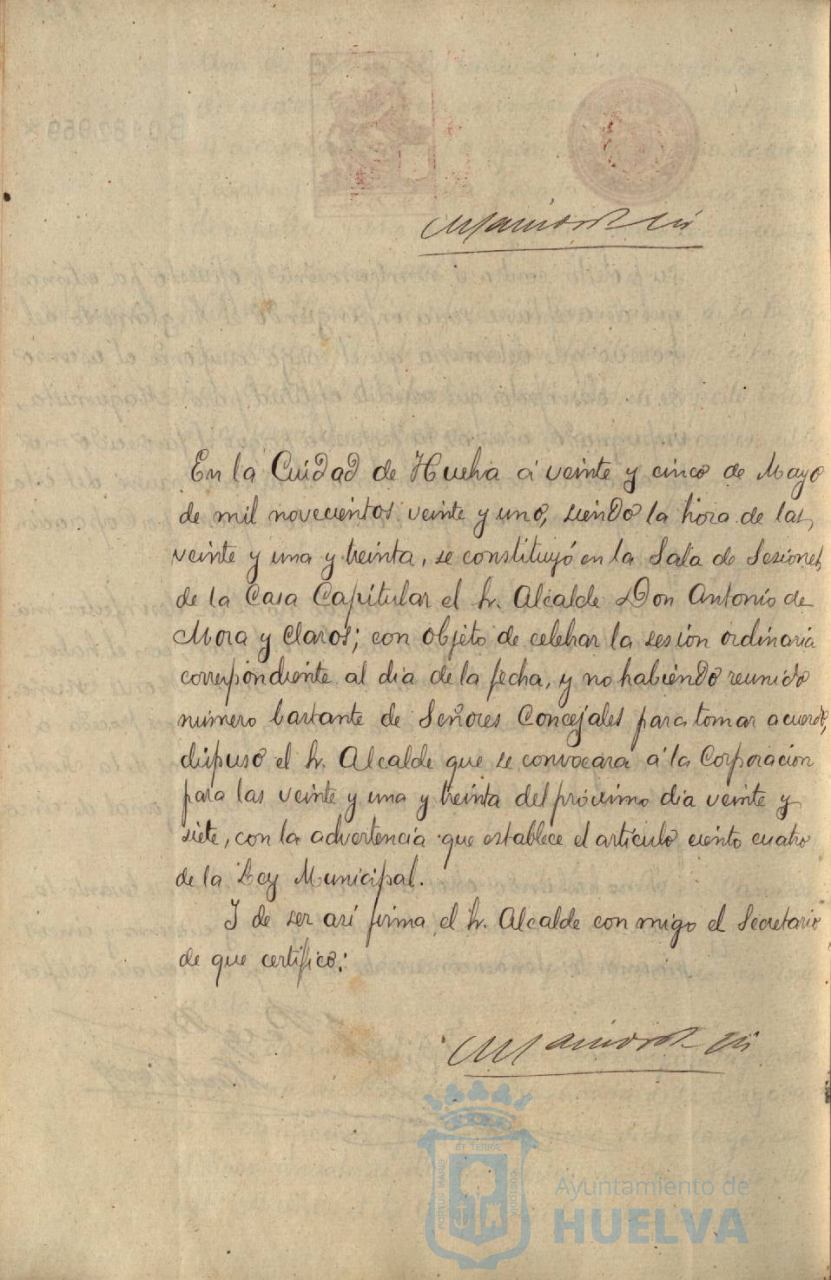 En la Cuidad de Huelva á veinte y cinco de Mayo
de mil novecientos veinte y uno, siendo la hora de las,
veinte y una y treinta, se constituyó en la Sala de Sesiones,
de la Casa Capitular el Sr. Alcalde Don Antonio de
Mora y Claros; con objeto de celebrar la sesión ordinaria
correspondiente al dia de la fecha, y no habiendo reunido
número bastante de Señores Concejales para tomar acuerdo,
dispuso el Sr. Alcalde que se convocara á la Corporación
para las veinte y una y treinta del próximo dia veinte y
siete, con la advertencia que establece el artículo ciento cuatro
de la Ley Municipal.
Y de ser así firma el Sr. Alcalde con migo el Secretario
de que certifico:
PORTUS MARIS ET TERRAE CUSTODIA
Ayuntamiento de
HUELVA